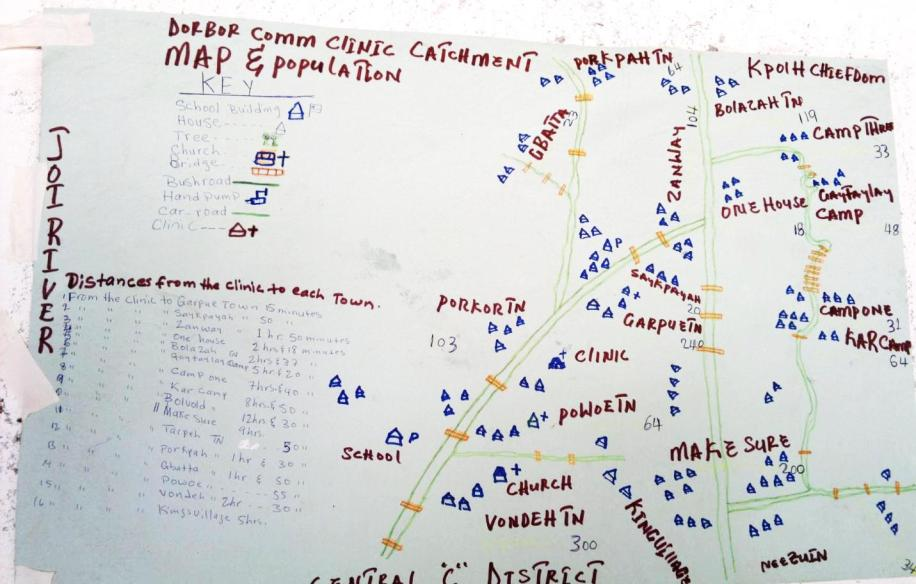 DORBOR COMM CLINIC CATCHMENT
MAP & POPULATION
KEY
School Building
House
Tree
Church
Bridge
Bushroad
Hand Pump
Car-road
Clinic
JOTRIVER
Distances from the clinic to each Town.
From the clinic to Garpue Town 15 minutes
Saykpayah 50
Zanway 1hr 50 minutes
One house 2 hrs & 18 minutes
Bolazah 2hrs & 37
Gaytaylay Camp 5hr & 20
Camp one 7hrs & 40
Kar Camp 8hrs & 50
Make Sure 12hrs & 30
Tarpeh TN 9hrs
Porkpah 1hr & 30
Gbaita 1hr & 50
Powoe 55
Vondeh 2hr 30
Kingsvillage 5hrs.
PORKPAH TN
64
KPOLH CHIEFDOM
BOLAZAH TN
119
CAMP THREE
33
GBAITA
23
ZANWAY
104
ONE HOUSE
18
GAYTAYLAY
CAMP
48
SAYKPAYAH
20
GARPUE TN
240
CAMP ONE
31
KAR CAMP
64
PORKOR TN
103
CLINIC
POWOE TN
64
SCHOOL
MAKE SURE
200
CHURCH
VONDEH TN
300
KINGVILLAGE
NEEZUIN
CENTRAL "C" DISTRICT